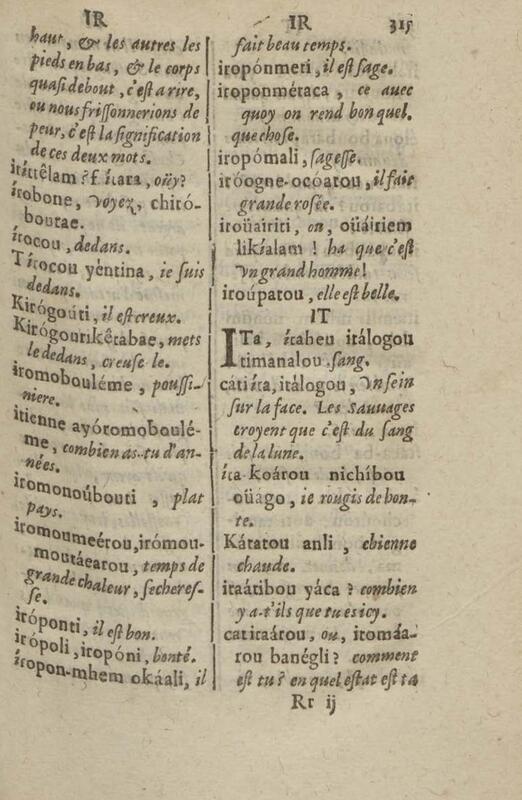 IR
haut, & les autres les
pieds en bas, & le corps
quasi debout, c'est a rire,
ou nous frissonnerions de
peur, c'est la signification
de ces deux mots.
íŕíttêlam ? f. íŧara, oüy?
írobone, voyez, chiró-
boutae.
írocou, dedans.
Tírocou yéntina, ie suis
dedans.
Kirógoúti, il est creux.
Kirógourikêtabae, mets
le dedans, creuse le.
iromobouléme, poussi-
niere.
itienne ayóromoboulé-
me, combien as-tu d'an-
nées.
iromonoúbouti, plat
pays.
iromoumeérou, irómou-
moutáearou, temps de
grande chaleur, secheres-
se.
iróponti, il est bon.
irópoli, iropóni, bonté.
íropon-mhem okáali, il
IR 315
fait beau temps.
iropónmeti, il est sage.
iroponmétaca, ce auec
quoy on rend bon quel-
que chose.
iropómali, sagesse.
iróogne-ocóatou, il fait
grande rosée.
iroüairiti, ou, oüáiriem
likíalam ! ha que c'est
vn grand homme !
iroúpatou, elle est belle.
IT
ITa, ítabeu itálogou
timanalou, sang.
cáti íta, itálogou, vn sein
sur la face. Les Sauuages
croyent que c'est du sang
de la lune.
íta-koárou nichíbou
oüágo, ie rougis de hon-
te.
Kátatou anli, chienne
chaude.
itaátibou yáca ? combien
y a-t'ils que tu es icy.
catitaátou, ou, itomáa-
rou banégli ? comment
est tu ? en quel estat est ta
Rr ij